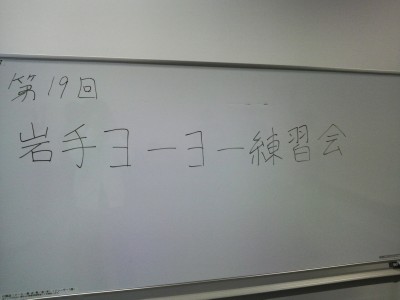 第19回
岩手ヨーヨー練習会